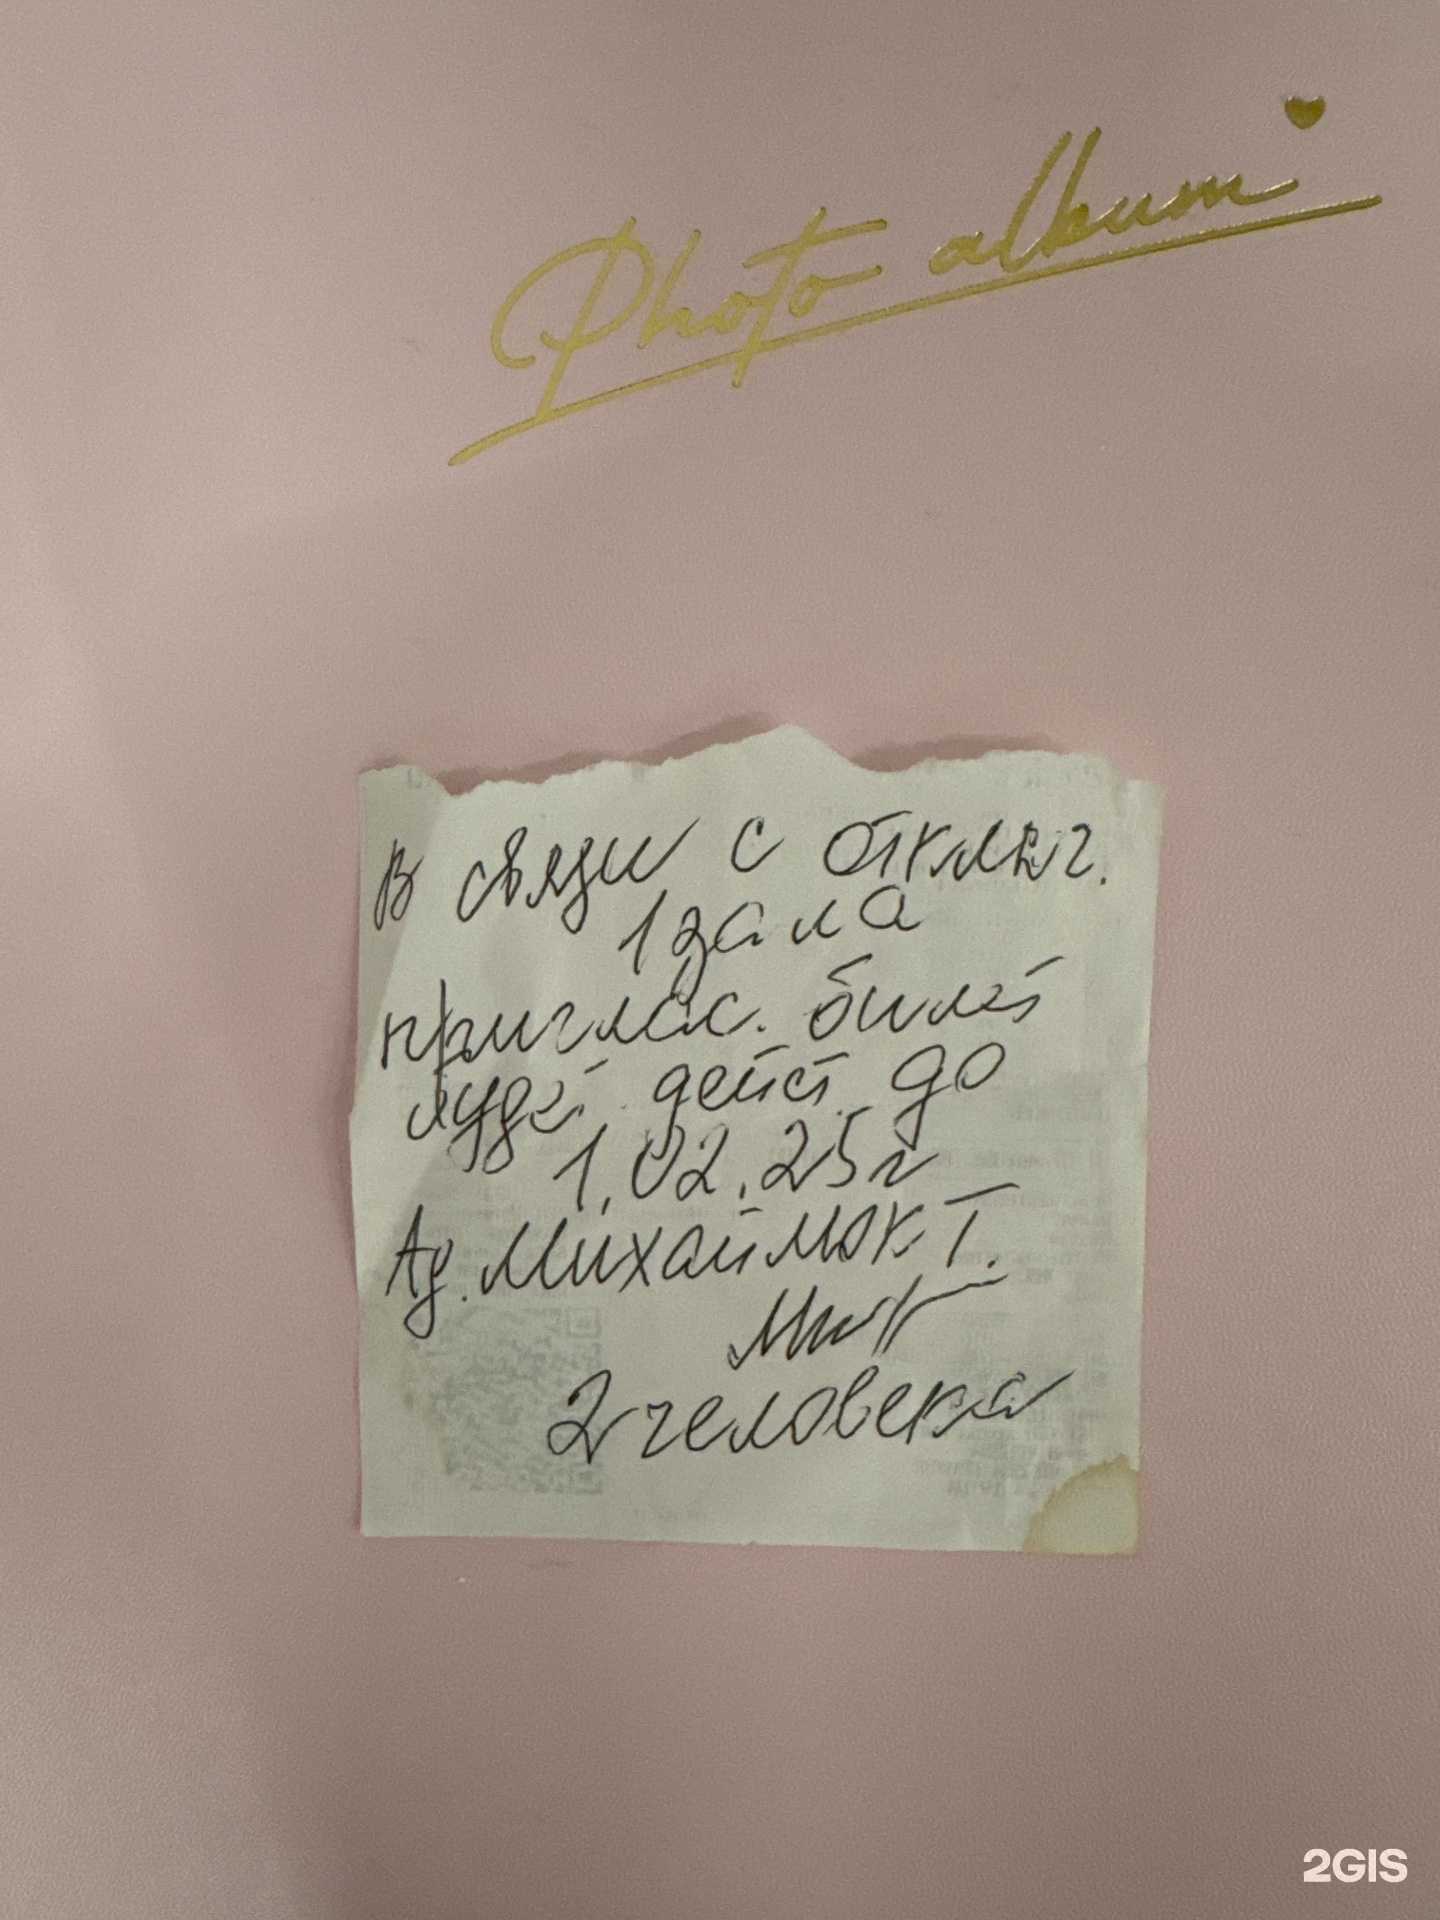 Photo album
В связи с отключ.
1 зала
приглас. билет
будет дейст. до
1.02.25г
Ад. Михайлюк Т.
2 человека
2GIS